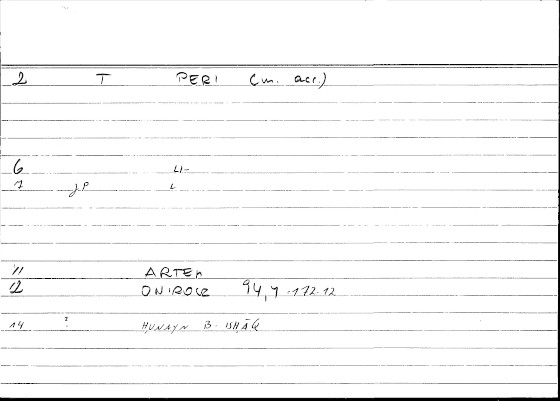 2 T PERI (m. acc.)
6 LI-
7 JP L
11 ARTEM
12 ONIROCR 94,7-172.12
14 ? HUNAYN B. ISHĀQ